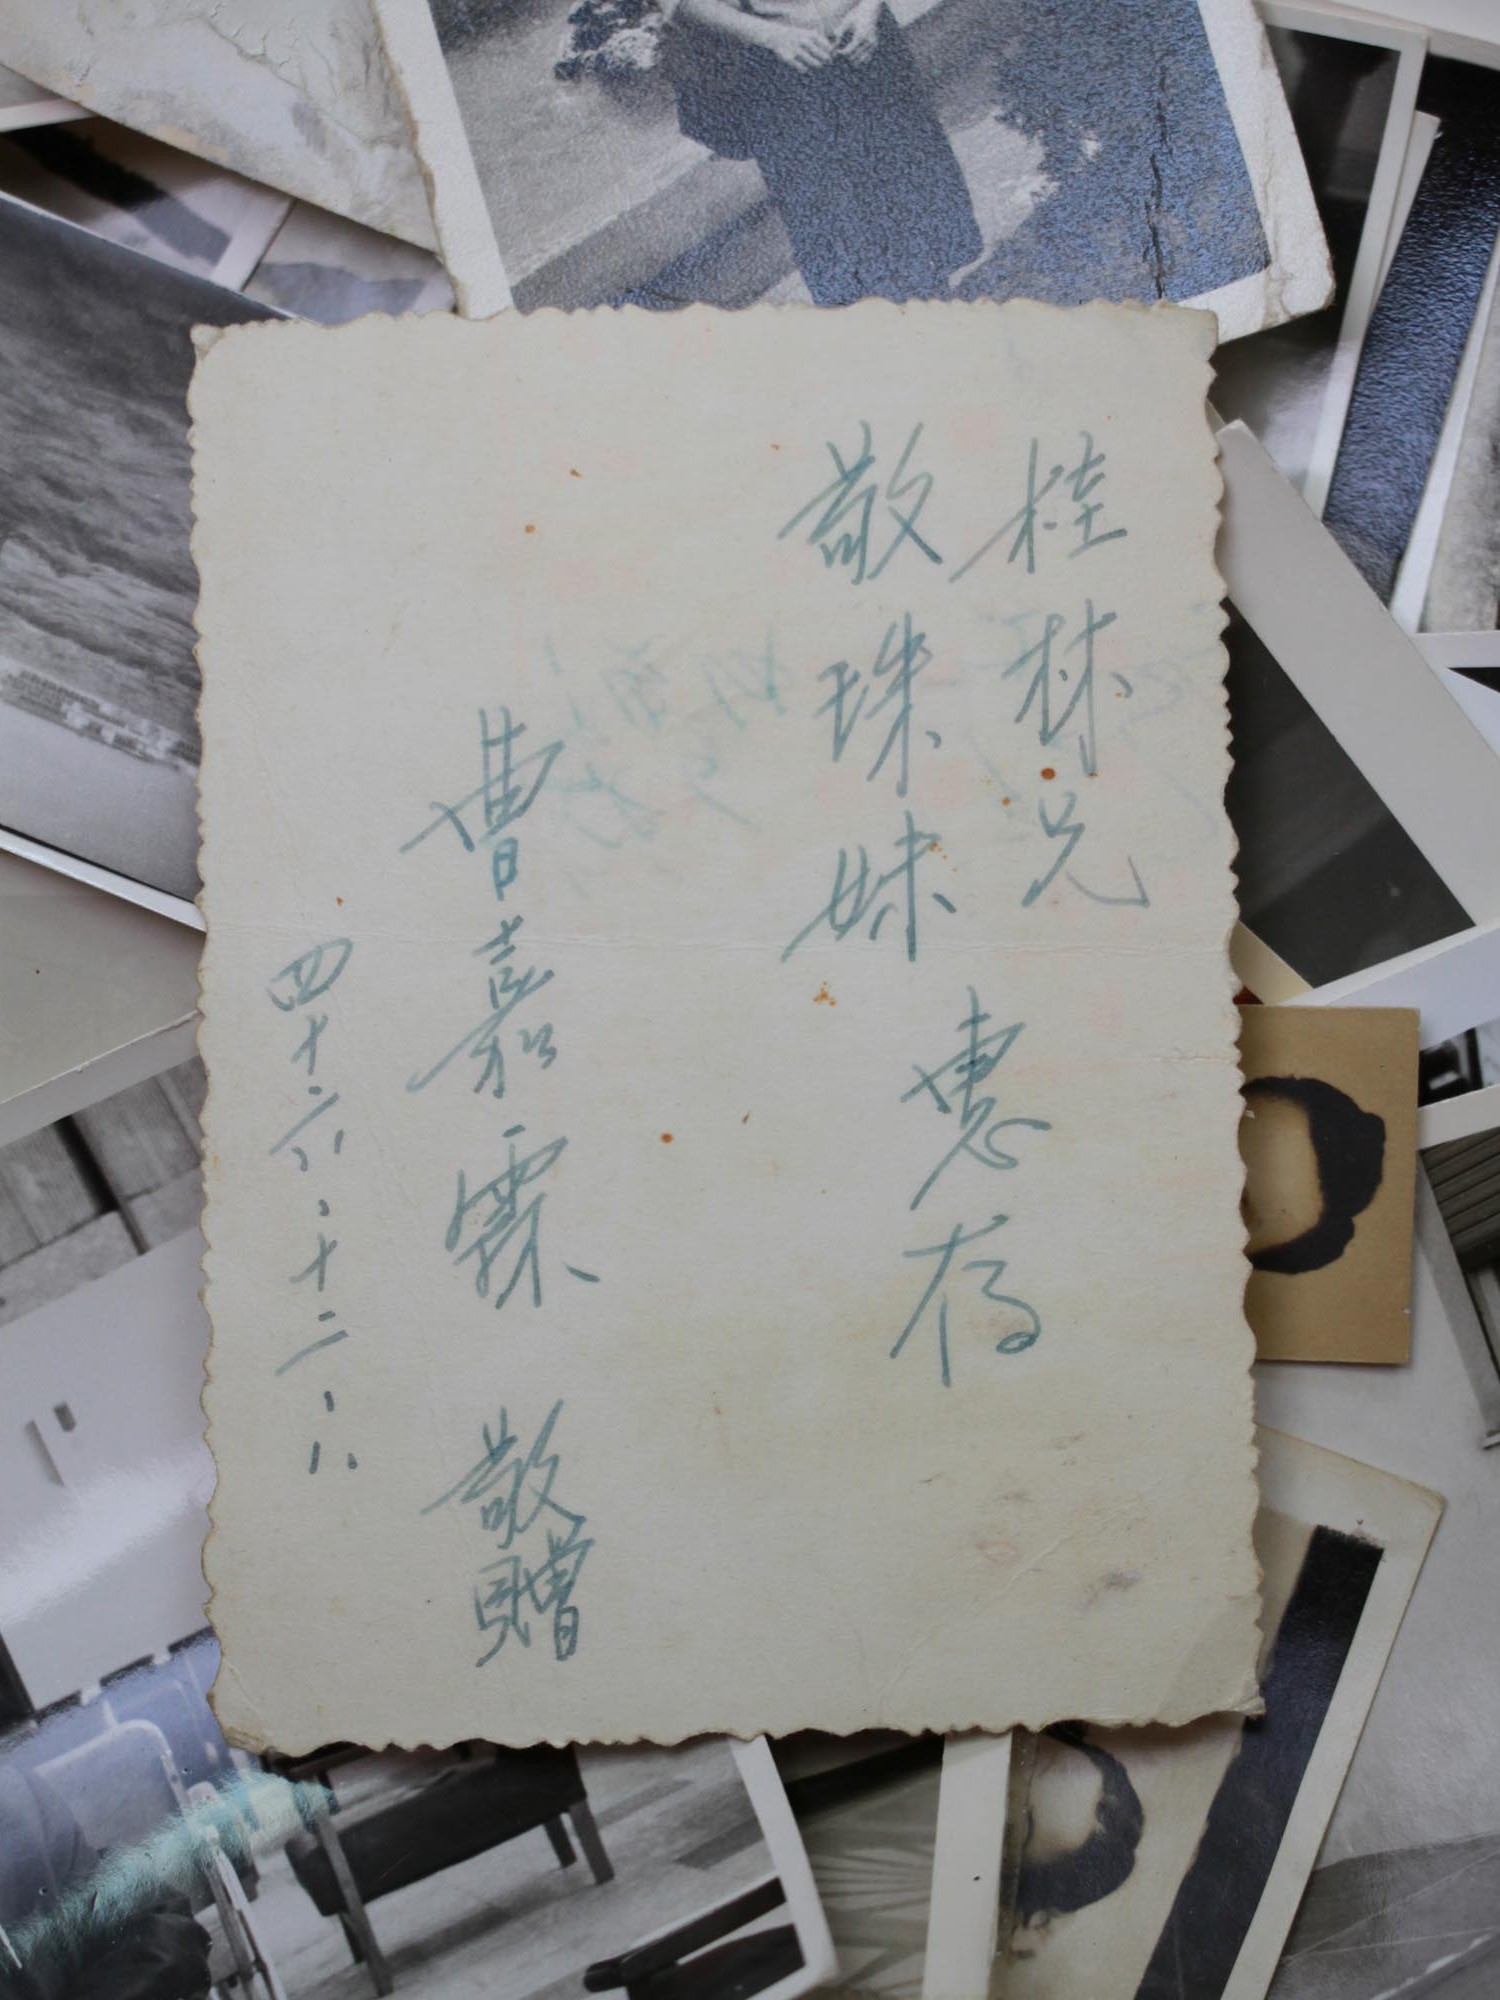 桂林兄
敬珠妹
惠存
曹嘉霖 敬贈
四十六、十二、八